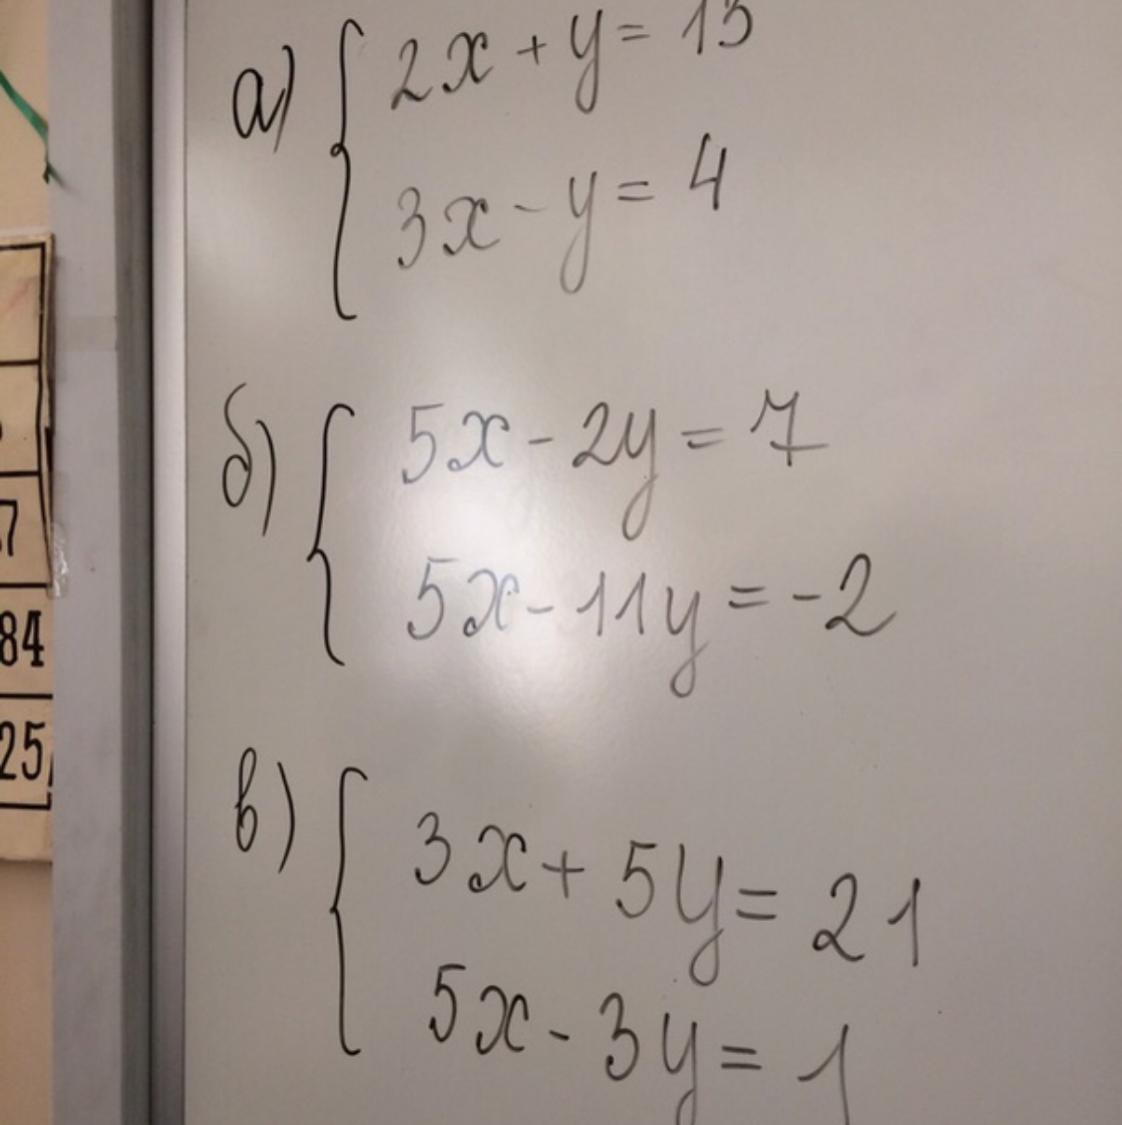 а) 2x + y =
3x - y = 4
б) 5x - 2y = 7
5x - 11y = -2
в) 3x + 5y = 21
5x - 3y = 1
7
84
25